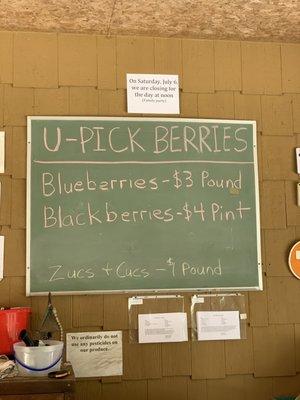 On Saturday, July 6
we are closing for
the day at noon
(Family party)
U-PICK BERRIES
Blueberries-$3 Pound
Blackberries-$4 Pint
Zucs + Cucs - $1 Pound
We ordinarily do not
use any pesticides on
our produce.